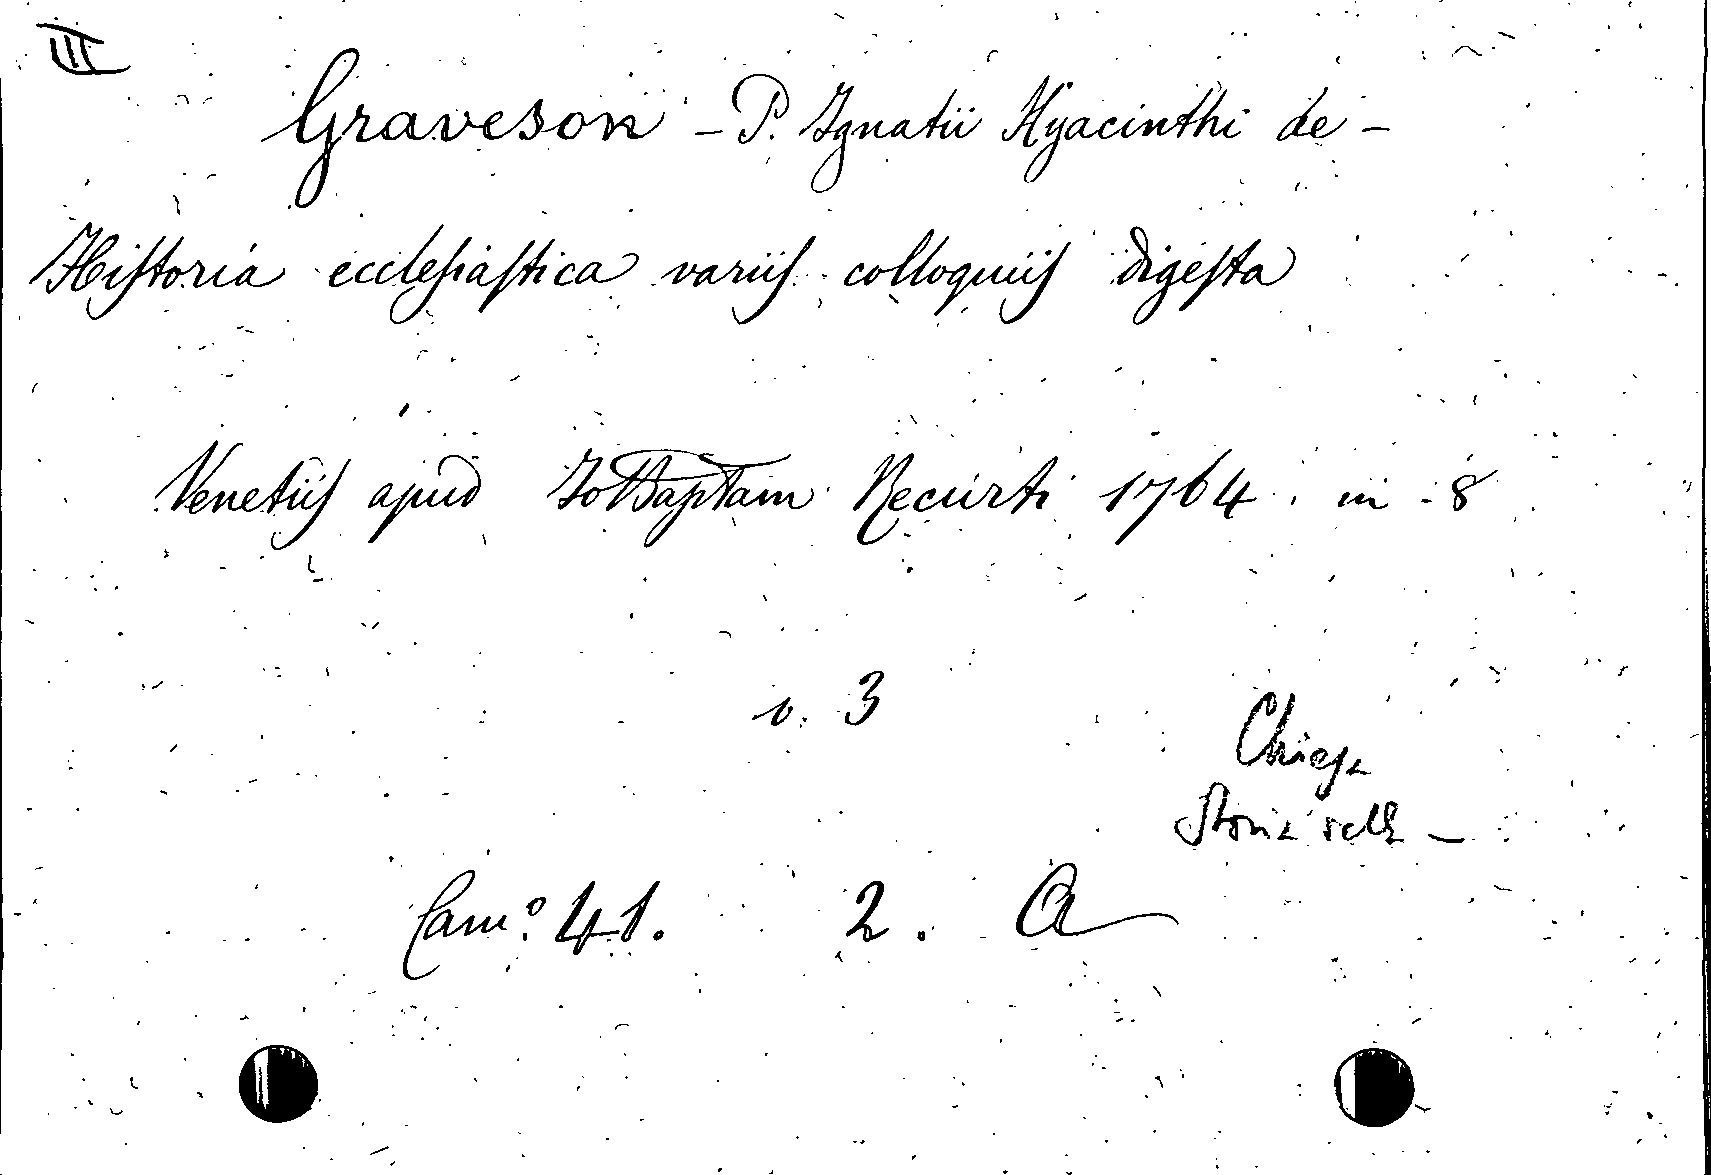 III
Graveson – P. Ignatii Hyacinthi de –
Historia ecclesiastica variis colloquiis digesta
Venetiis apud Jo Baptam Recurti 1764. in 8
v. 3
Chiesa
Storia della –
Cam.º 41. 2. A